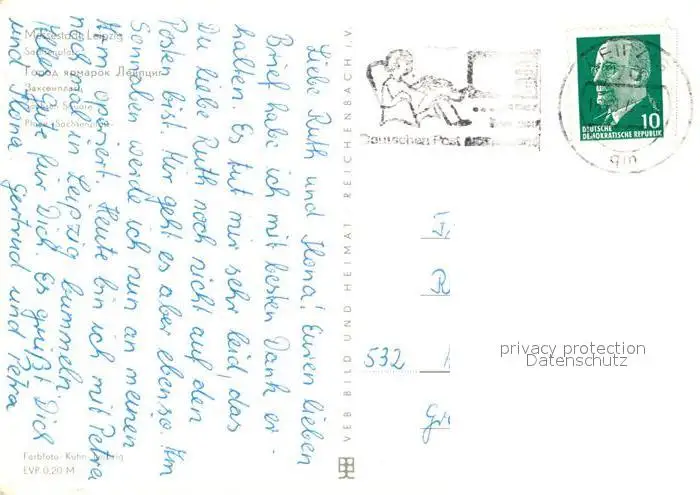 Messestadt Leipzig
Sachsenplatz
Город ярмарок Лейпциг
Farbfoto: Kühn, Leipzig
EVP 0,20 M
Liebe Ruth und Ilona! Euren lieben
Brief habe ich mit besten Dank er-
halten. Es tut mir sehr leid, das
Du liebe Ruth noch nicht auf den
Posten bist. Mir geht es aber ebenso. Am
Sonnaben werde ich nun an meinen
operiert. Heute bin ich mit Petra
noch mal in Leipzig bummeln.
Alles Gute für Dich. Es grüßt Dich
und Ilona. Gertrud und Petra
VEB BILD UND HEIMAT REICHENBACH I.V.
Deutschen Post
10
DEUTSCHE
DEMOKRATISCHE REPUBLIK
532
privacy protection
Datenschutz